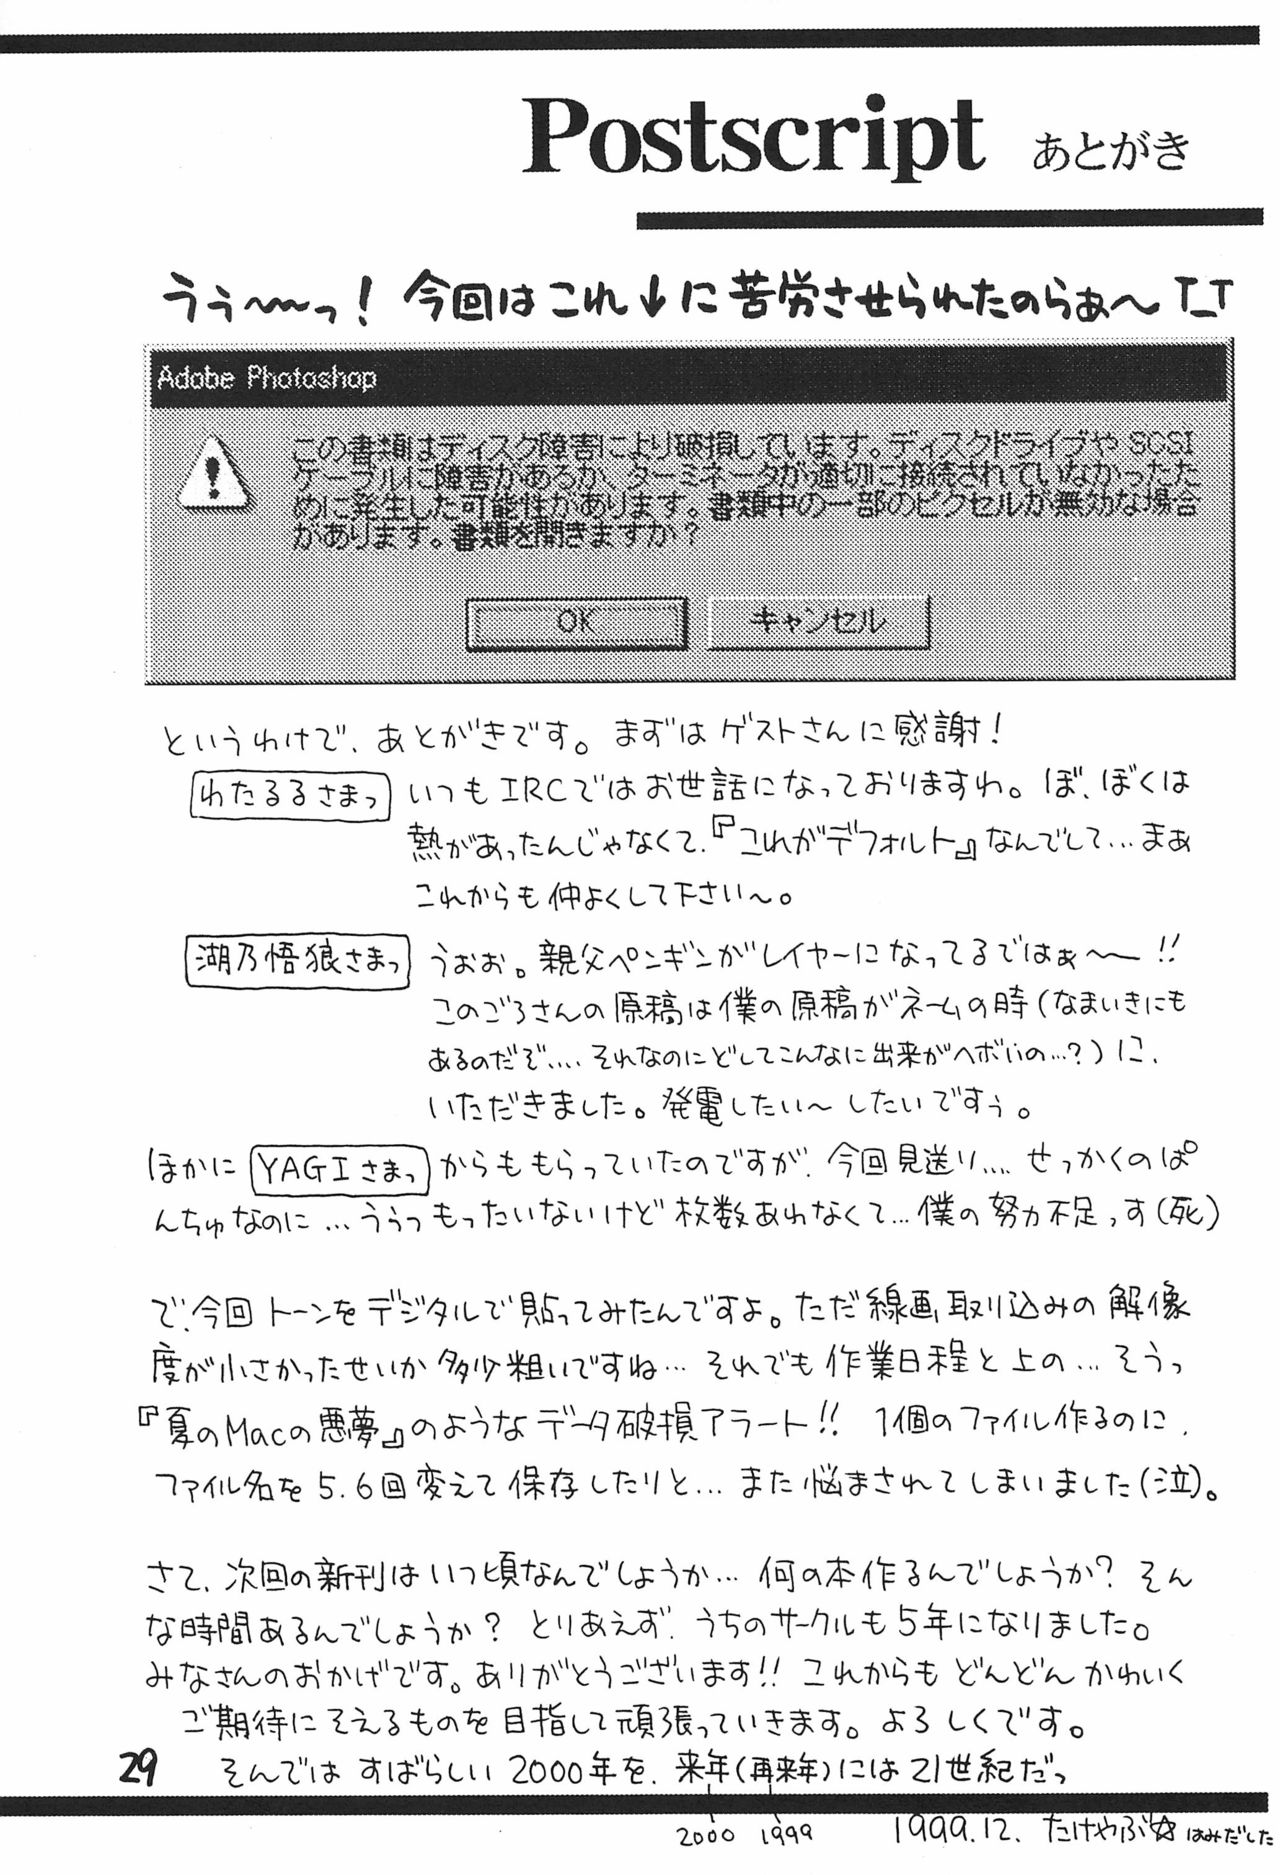 Postscript あとがき
うぅ〜〜っ! 今回はこれ↓に苦労させられたのらぁ〜 T_T
Adobe Photoshop
この書類はディスク障害により破損しています。ディスクドライブや SCSI
ケーブルに障害があるか、ターミネータが適切に接続されていなかったた
めに発生した可能性があります。書類中の一部のピクセルが無効な場合
があります。書類を開きますか?
OK キャンセル
というわけで、あとがきです。まずはゲストさんに感謝!
わたるるさまっ いつもIRCではお世話になっておりますわ。ぼ、ぼくは
熱があったんじゃなくて、『これがデフォルト』なんでして…まぁ
これからも仲よくして下さい〜。
湖乃悟狼さまっ うおぉ。親父ペンギンがレイヤーになってるではぁ〜〜!!
このごろさんの原稿は僕の原稿がネームの時(なまいきにも
あるのだぞ.... それなのにどしてこんなに出来がヘボいの…?)に、
いただきました。発電したい〜したいですぅ。
ほかに YAGIさまっ からももらっていたのですが、今回見送り.... せっかくのぱ
んちゅなのに…ううっもったいないけど枚数あわなくて…僕の努力不足っす(死)
で、今回トーンをデジタルで貼ってみたんですよ。ただ線画取り込みの解像
度が小さかったせいか多少粗いですね… それでも作業日程と上の… そうっ
『夏のMacの悪夢』のようなデータ破損アラート!! 1個のファイル作るのに、
ファイル名を5.6回変えて保存したりと… また悩まされてしまいました(泣)。
さて、次回の新刊はいつ頃なんでしょうか… 何の本作るんでしょうか? そん
な時間あるんでしょうか? とりあえず、うちのサークルも5年になりました。
みなさんのおかげです。ありがとうございます!! これからもどんどんかわいく
ご期待にそえるものを目指して頑張っていきます。よろしくです。
29 そんではすばらしい2000年を、来年(再来年)には21世紀だっ
2000 1999 1999.12. たけやぶ☆ はみだした